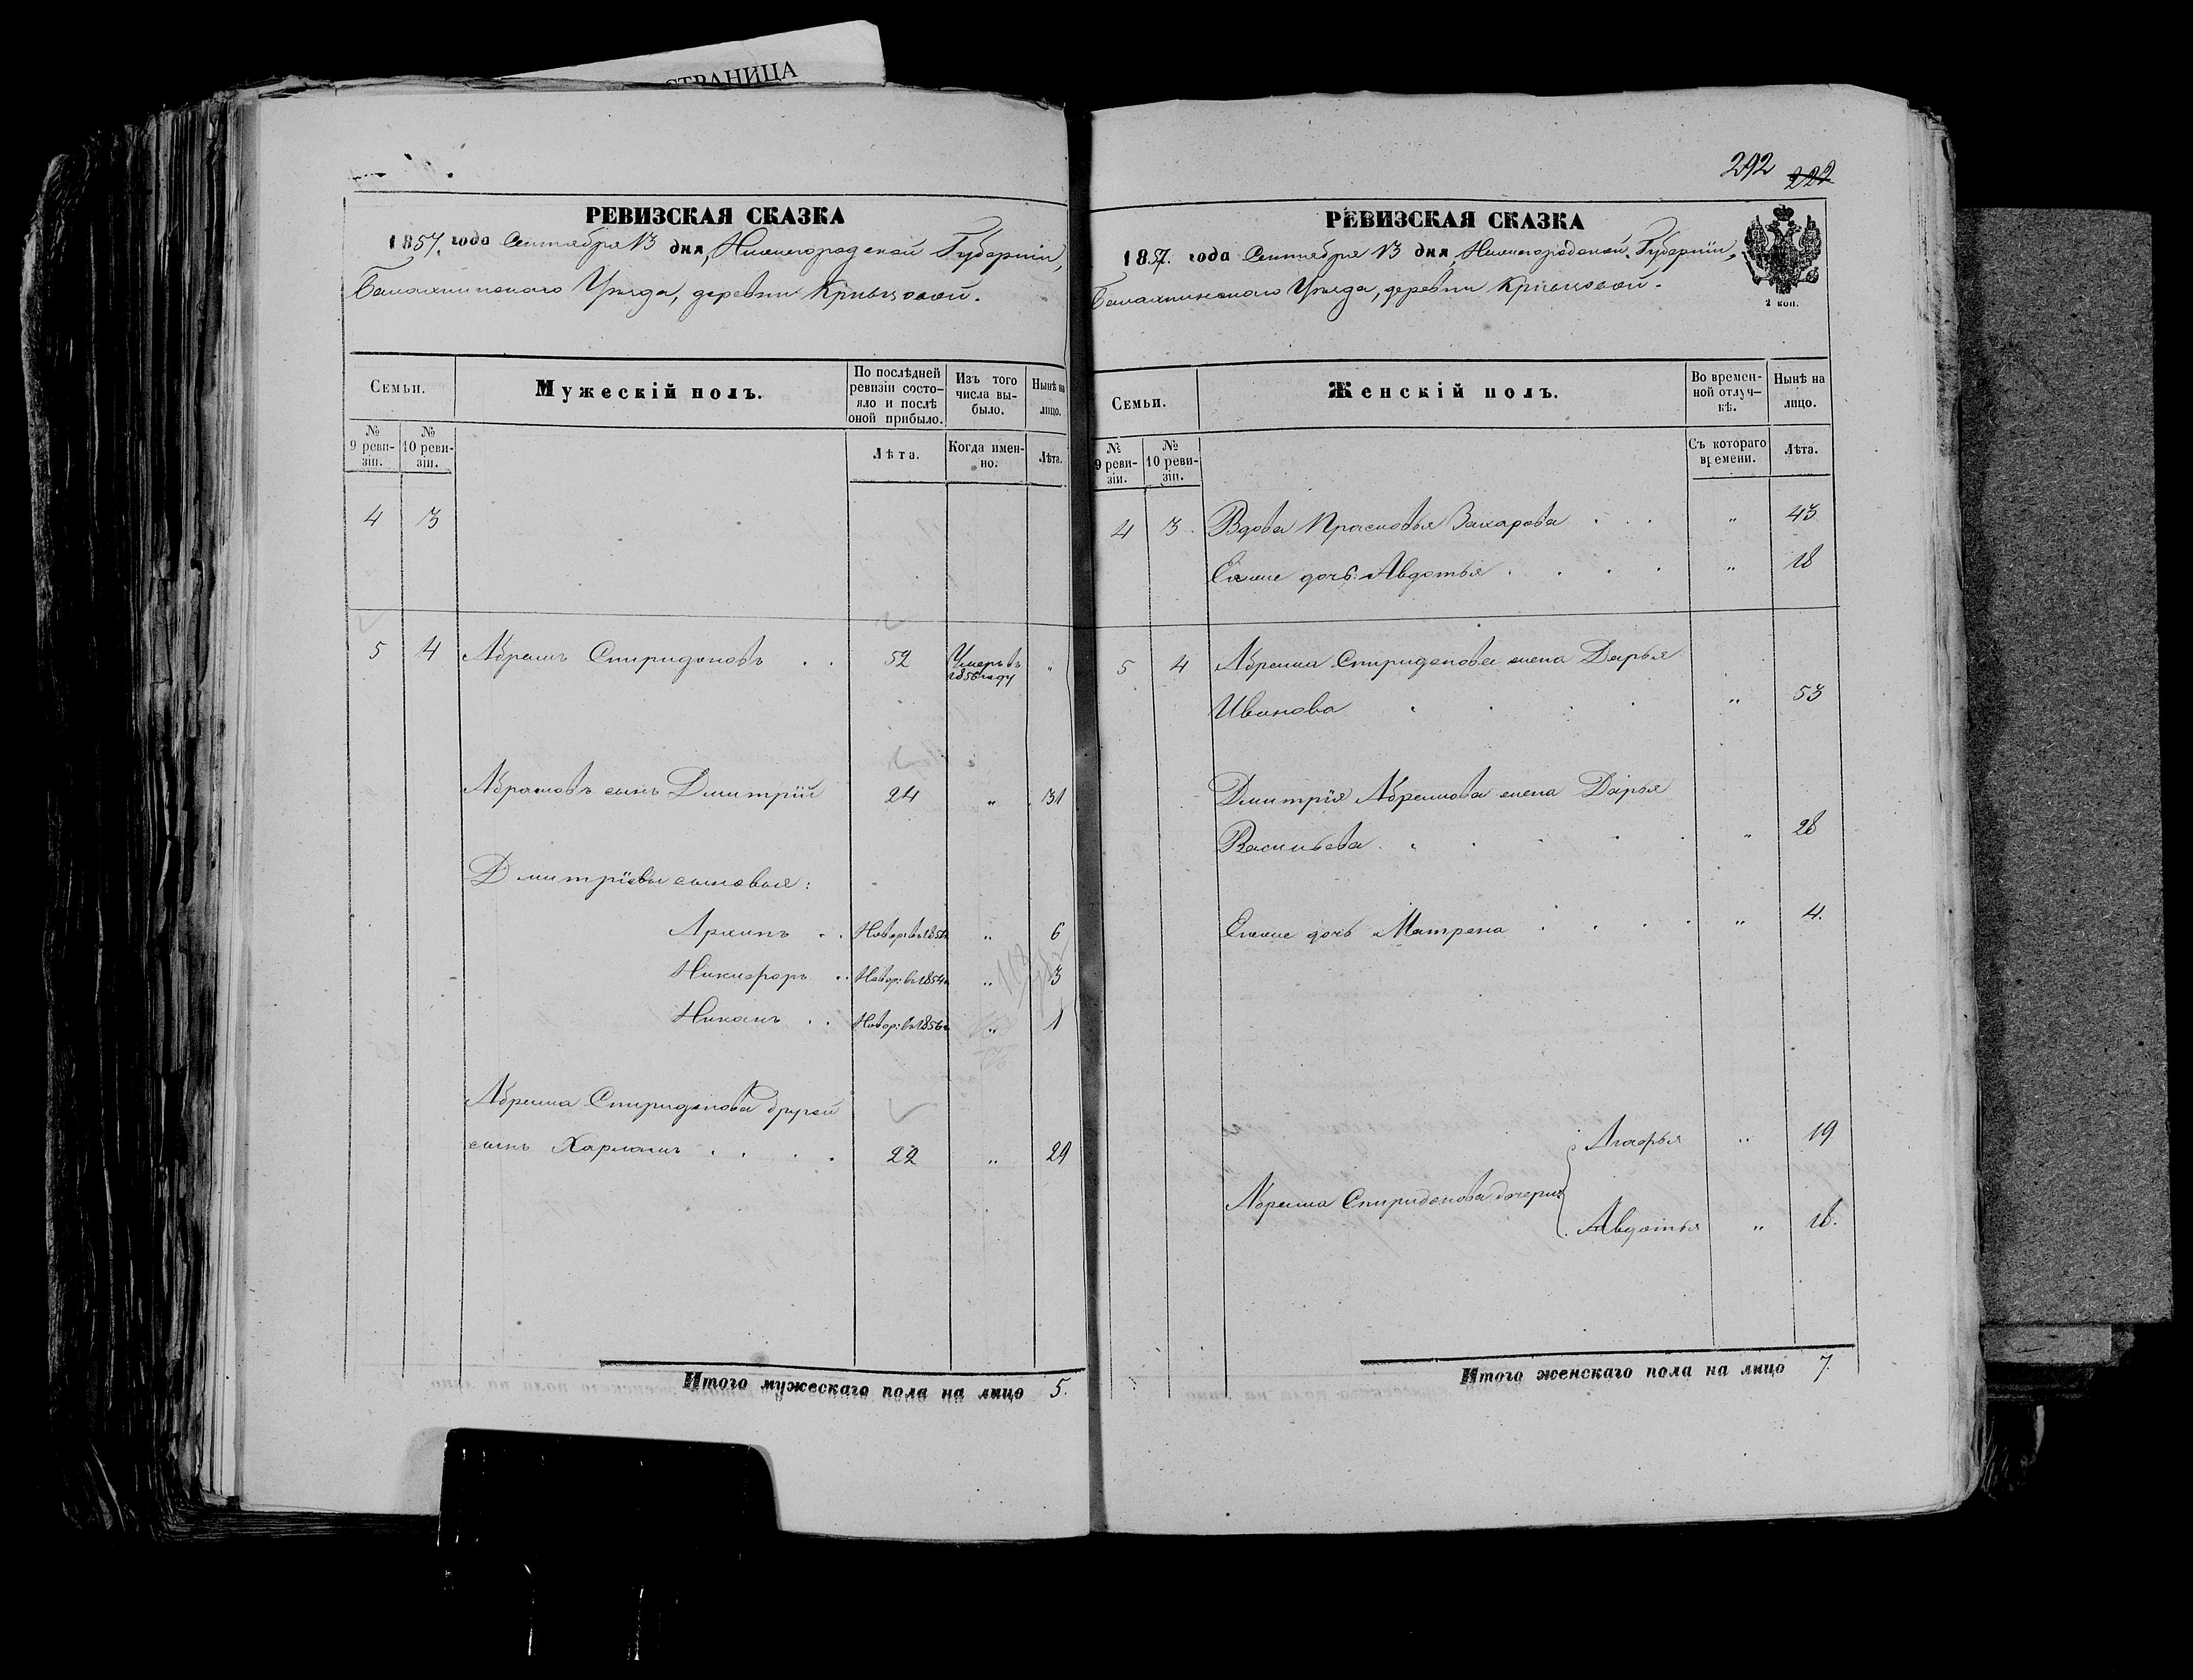 СТРАНИЦА
РЕВИЗСКАЯ СКАЗКА
1857. года Сентября 13 дня, Нижегородской Губерніи,
Балахнинскаго Уѣзда, деревни Кривцовой.
Семьи.
Мужескій полъ.
По послѣдней ревизіи состояло и послѣ оной прибыло.
Изъ того числа выбыло.
Нынѣ на лицо.
№ 9 ревизіи.
№ 10 ревизіи.
Лѣта.
Когда именно.
Лѣта.
4 3
5 4 Абрамъ Спиридоновъ . . 52 Умеръ въ 1856 году "
Абрамовъ сынъ Дмитрій 24 " 31
Дмитріевы сыновья:
Архипъ . . Новор: въ 1851 " 6
Никифоръ . . Новор: въ 1854 " 3
Никонъ . . Новор: въ 1856 " 1
Абрама Спиридонова другой
сынъ Харлам . . . . 22 " 29
Итого мужескаго пола на лицо 5.
292 222
РЕВИЗСКАЯ СКАЗКА
1857. года Сентября 13 дня, Нижегородской Губерніи,
Балахнинскаго Уѣзда, деревни Кривцовой.
2 коп.
Семьи.
Женскій полъ.
Во временной отлучкѣ.
Нынѣ на лицо.
№ 9 ревизіи.
№ 10 ревизіи.
Съ котораго времени.
Лѣта.
4 3 Вдова Прасковья Захарова . . . " 43
Ея же дочь Авдотья . . . . " 18
5 4 Абрама Спиридонова жена Дарья
Иванова . . . . " 53
Дмитрія Абрамова жена Дарья
Васильева . . . . . " 28
Ея же дочь Матрена . . . . " 4.
Агафья " 19
Абрама Спиридонова дочери
Авдотья " 18.
Итого женскаго пола на лицо 7.